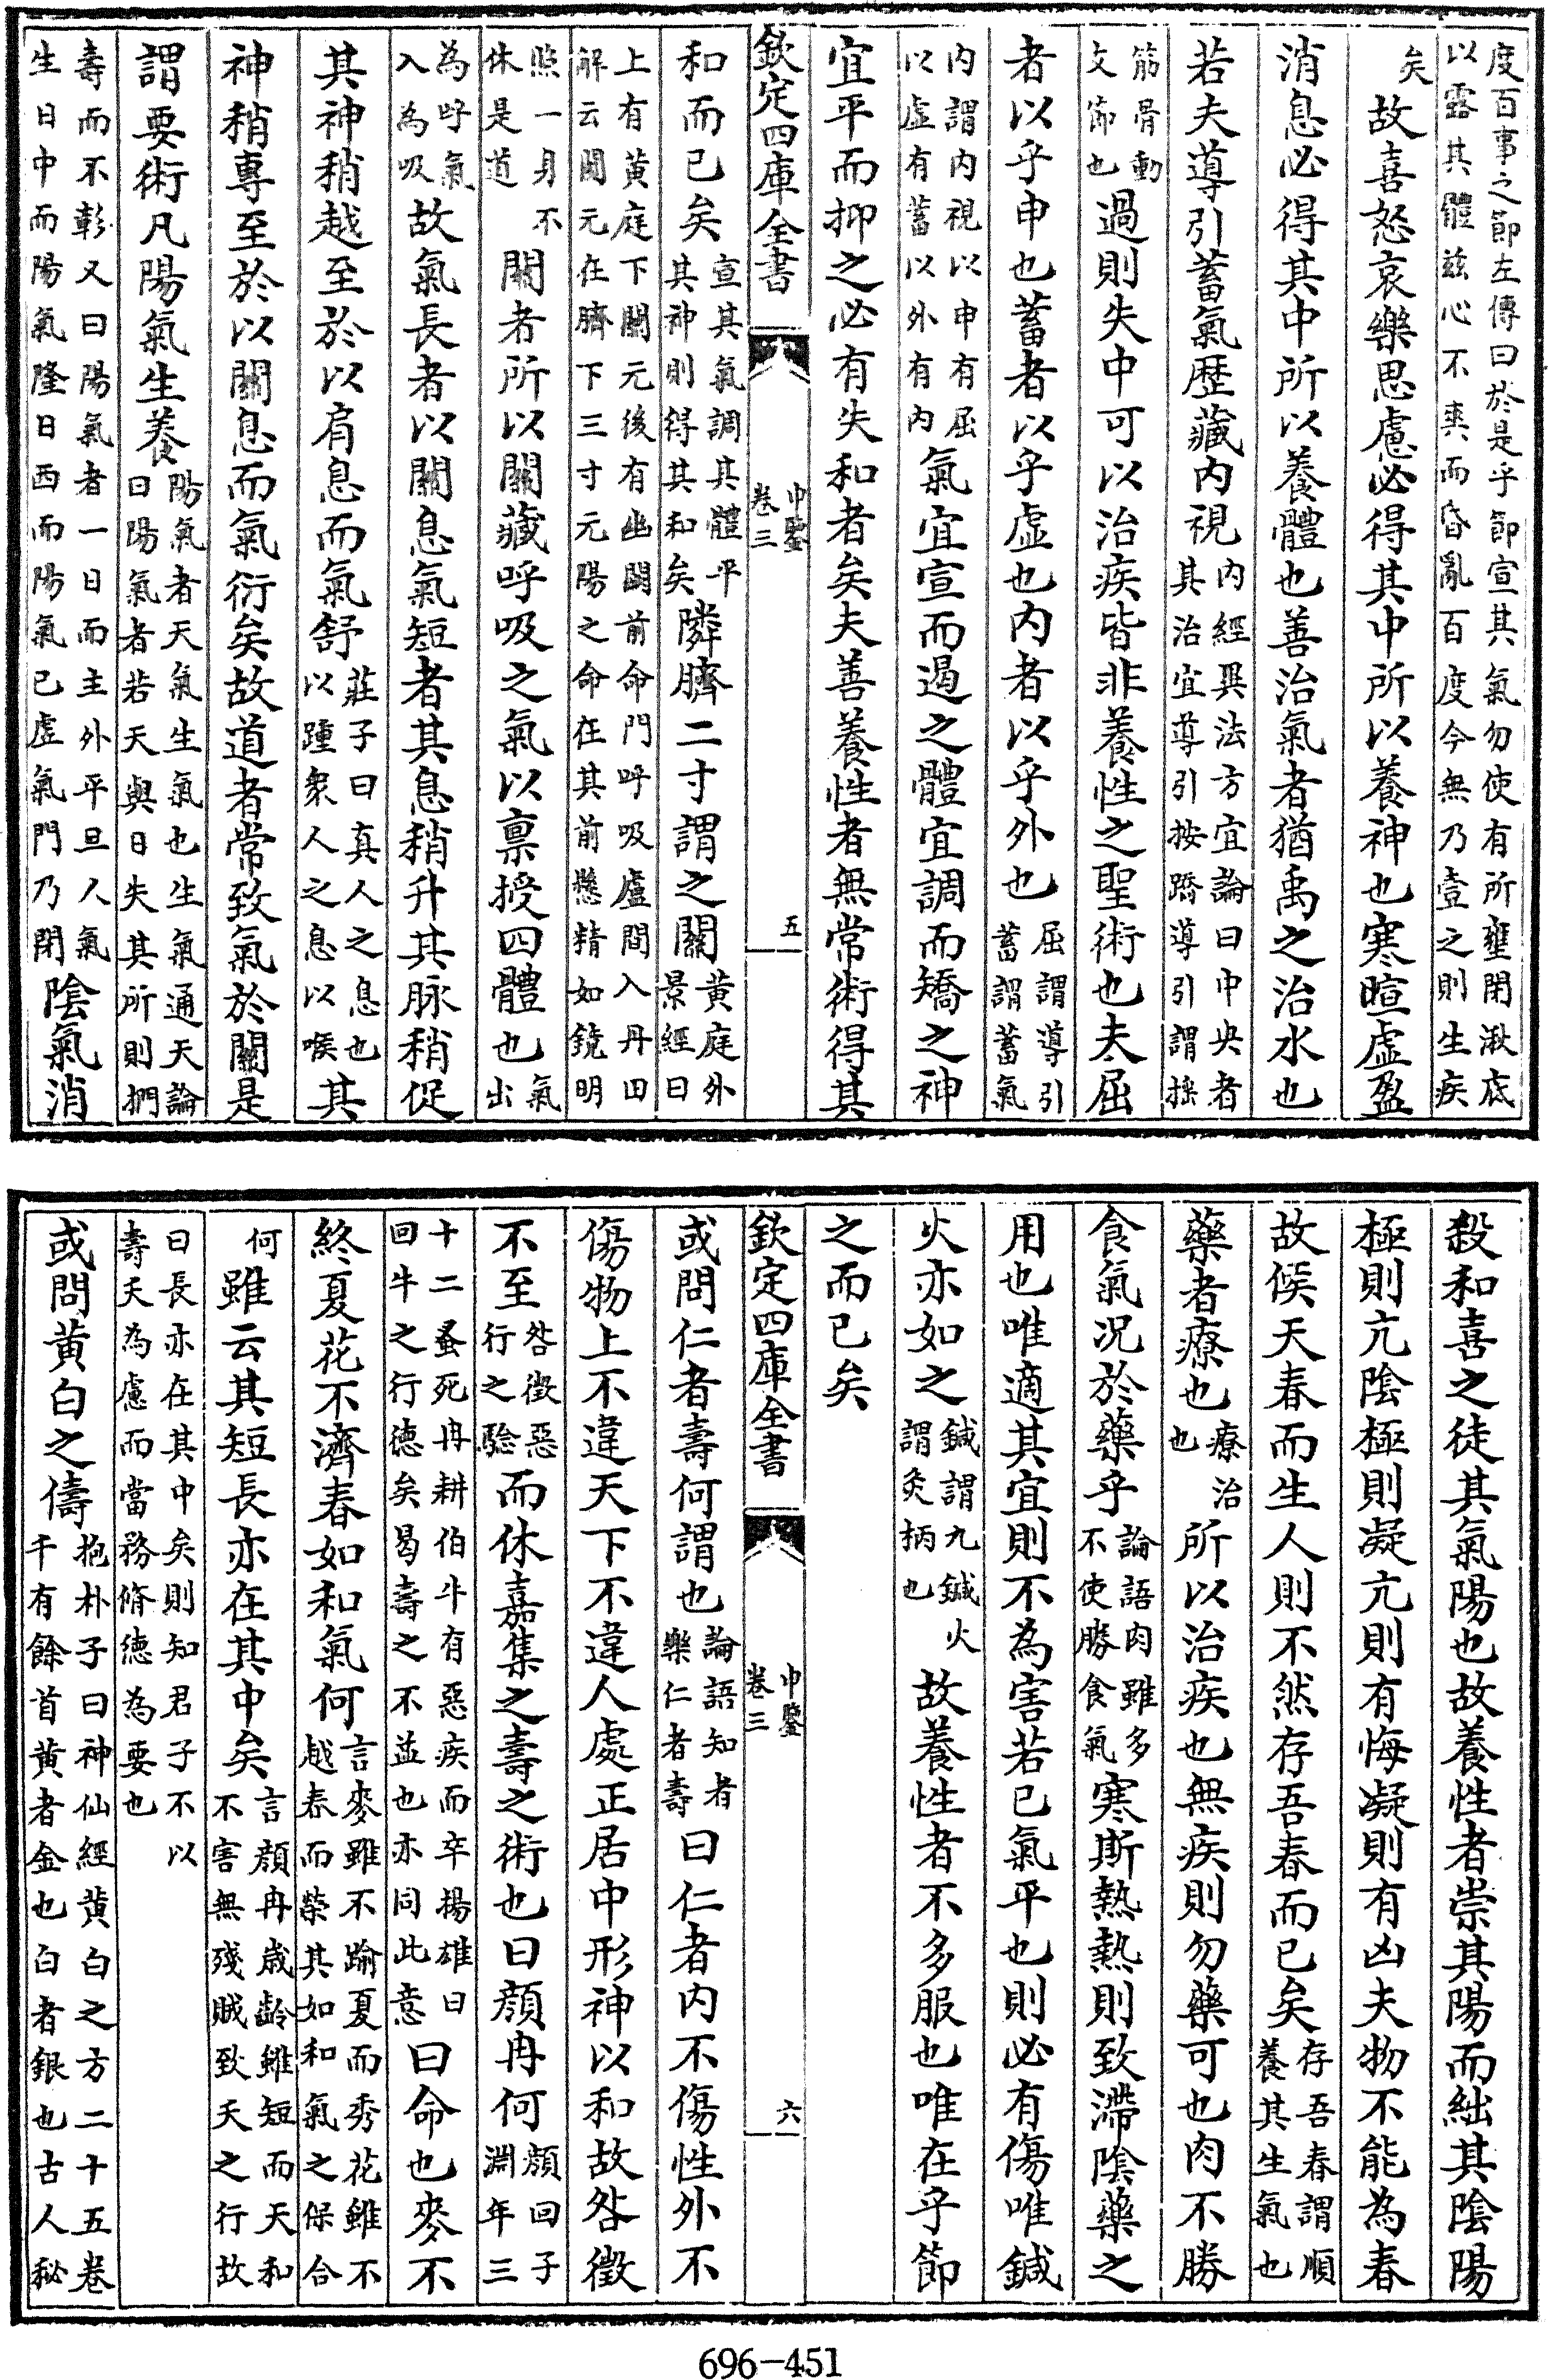 度百事之節左傳曰於是乎節宣其氣勿使有所壅閉湫底
以露其體兹心不爽而昏亂百度今無乃壹之則生疾
矣故喜怒哀樂思慮必得其中所以養神也寒暄虛盈
消息必得其中所以養體也善治氣者猶禹之治水也
若夫導引蓄氣歴藏内視内經異法方宜論曰中央者其治宜導引按蹻導引謂揺
筋骨動支節也過則失中可以治疾皆非養性之聖術也夫屈
者以乎申也蓄者以乎虚也内者以乎外也屈謂導引蓄謂蓄氣
内謂内視以申有屈以虚有蓄以外有内氣宜宣而遏之體宜調而矯之神
宜平而抑之必有失和者矣夫善養性者無常術得其
欽定四庫全書 申鑒 卷三 五
和而已矣宣其氣調其體平其神則得其和矣隣臍二寸謂之關黄庭外景經曰
上有黄庭下關元後有幽闕前命門呼吸廬間入丹田
解云關元在臍下三寸元陽之命在其前懸精如鏡明
照一身不休是道關者所以關藏呼吸之氣以禀授四體也氣出
為呼氣入為吸故氣長者以關息氣短者其息稍升其脉稍促
其神稍越至於以肩息而氣舒莊子曰真人之息也以踵衆人之息以喉其
神稍專至於以關息而氣衍矣故道者常致氣於關是
謂要術凡陽氣生養陽氣者天氣生氣也生氣通天論曰陽氣者若天與日失其所則
壽而不彰又曰陽氣者一日而主外平旦人氣生日中而陽氣隆日西而陽氣已虚氣門乃閉陰氣消
殺和喜之徒其氣陽也故養性者崇其陽而絀其陰陽
極則亢陰極則凝亢則有悔凝則有凶夫物不能為春
故候天春而生人則不然存吾春而已矣存吾春謂順養其生氣也
藥者療也療治也所以治疾也無疾則勿藥可也肉不勝
食氣况於藥乎論語肉雖多不使勝食氣寒斯熱熱則致滯陰藥之
用也唯適其宜則不為害若已氣平也則必有傷唯鍼
火亦如之鍼謂九鍼火謂灸焫也故養性者不多服也唯在乎節
之而已矣
欽定四庫全書 申鑒 卷三 六
或問仁者壽何謂也論語知者樂仁者壽曰仁者内不傷性外不
傷物上不違天下不違人處正居中形神以和故咎徵
不至咎徵惡行之驗而休嘉集之壽之術也曰顔冉何顔回子淵年三
十二蚤死冉耕伯牛有惡疾而卒揚雄曰回牛之行德矣曷壽之不益也亦同此意曰命也麥不
終夏花不濟春如和氣何言麥雖不踰夏而秀花雖不越春而榮其如和氣之保合
何雖云其短長亦在其中矣言顔冉歳齡雖短而天和不害無殘賊致夭之行故
曰長亦在其中矣則知君子不以
壽夭為慮而當務脩德為要也
或問黄白之儔抱朴子曰神仙經黄白之方二十五卷千有餘首黄者金也白者銀也古人秘
696-451